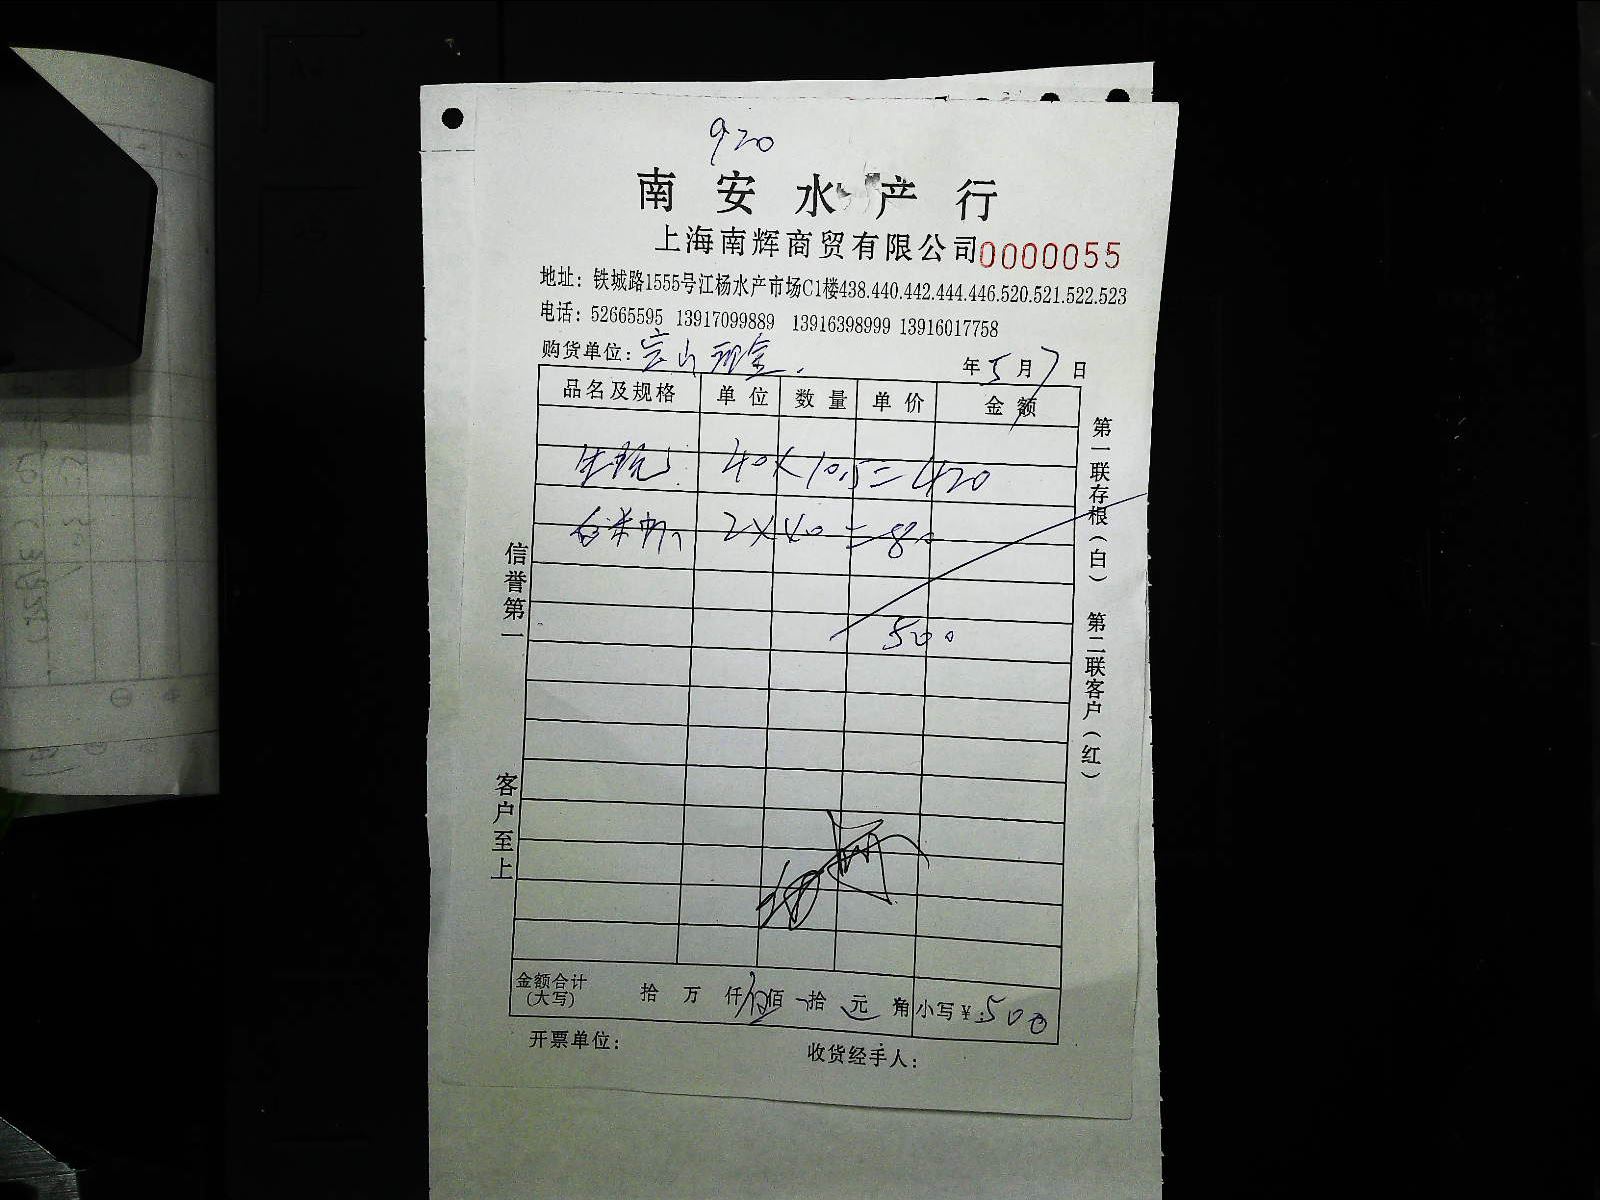 920
南安水产行
上海南辉商贸有限公司0000055
地址：铁城路1555号江杨水产市场C1楼438.440.442.444.446.520.521.522.523
电话：52665595 13917099889 13916398999 13916017758
购货单位：宝山现金. 年5月7日
品名及规格 单位 数量 单价 金额
40×10.5=420
2×40=80
500
金额合计（大写） 拾 万 仟伍佰 拾 元 角 小写￥:500
开票单位： 收货经手人：
信誉第一
客户至上
第一联存根（白） 第二联客户（红）